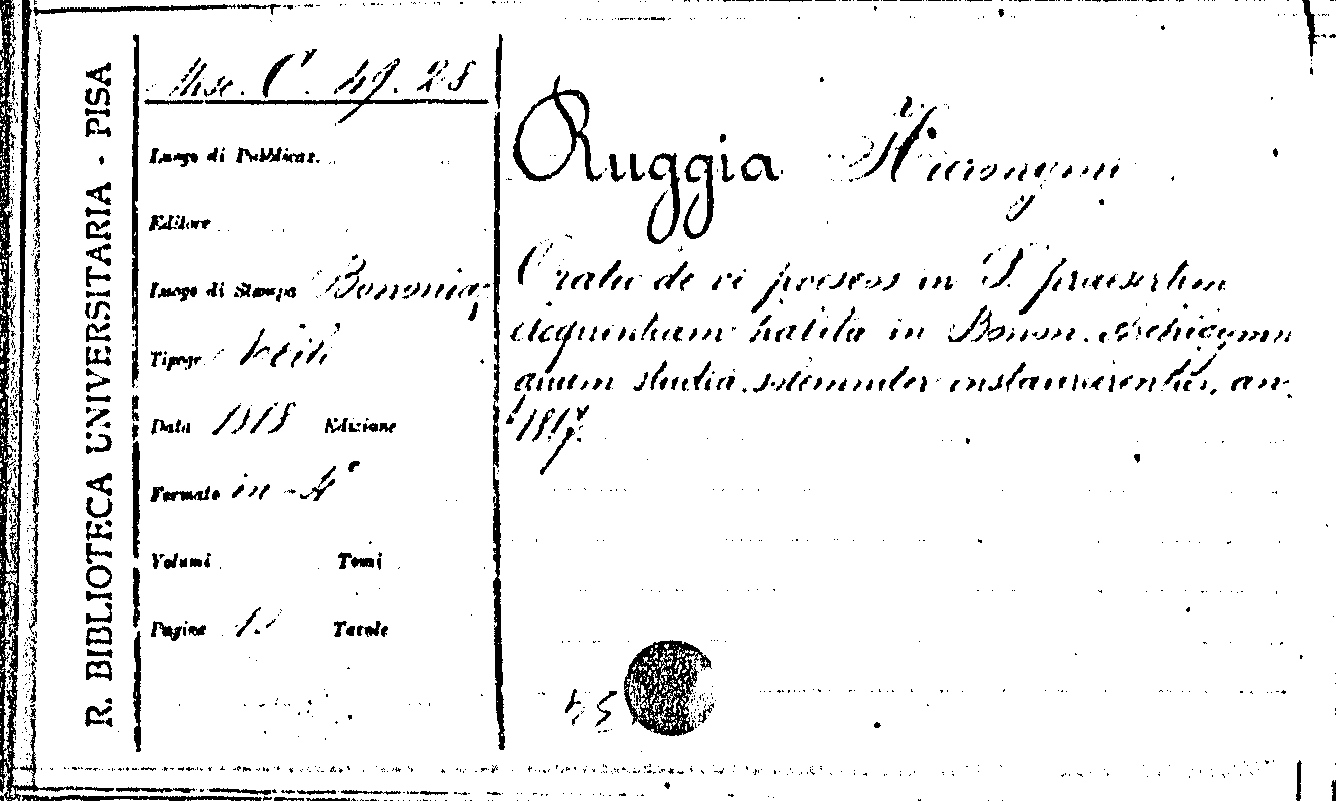 R. BIBLIOTECA UNIVERSITARIA - PISA
Misc. C. 49. 28
Luogo di Pubblicaz.
Editore
Luogo di Stampa Bononiae
Tipogr.
Data 1818 Edizione
Formato in-4°
Volumi Tomi
Pagine Tavole
Ruggia Hieronymi
Oratio de vi poeseos in S. praesertim
eloquentiam habita in Bonon. Archigymn
quum studia solemniter instaurarentur, an.
1817.